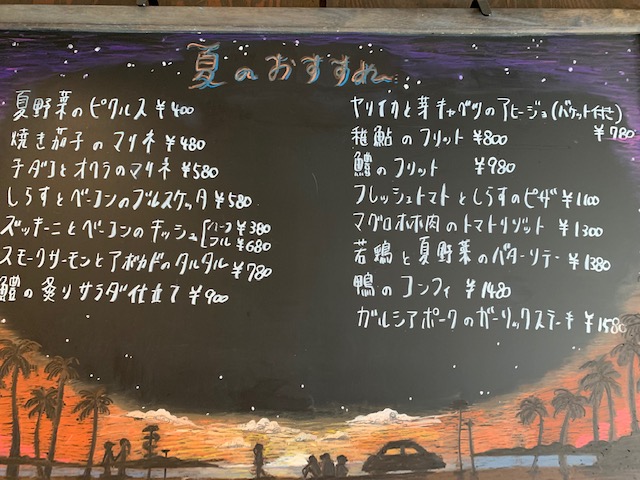 夏のおすすめ
夏野菜のピクルス ¥400
焼き茄子のマリネ ¥480
子ダコとオクラのマリネ ¥580
しらすとベーコンのブルスケッタ ¥580
ズッキーニとベーコンのキッシュ[ハーフ ¥380
フル ¥680
スモークサーモンとアボカドのタルタル ¥780
鱧の炙りサラダ仕立て ¥900
ヤリイカと芽キャベツのアヒージョ(バケット付き)
¥780
稚鮎のフリット ¥800
鱧のフリット ¥980
フレッシュトマトとしらすのピザ ¥1100
マグロホホ肉のトマトリゾット ¥1300
若鶏と夏野菜のバターソテー ¥1380
鴨のコンフィ ¥1480
ガルシアポークのガーリックステーキ ¥1580